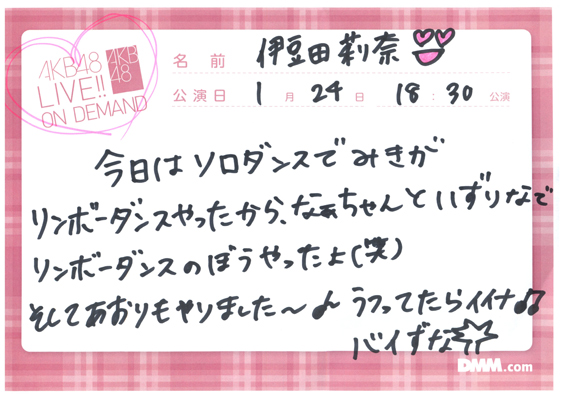 AKB48
LIVE!!
ON DEMAND
AKB
48
名 前 伊豆田莉奈
公演日 1 月 24 日 18 : 30 公演
今日はソロダンスでみきが
リンボーダンスやったから、なぁちゃんといずりなで
リンボーダンスのぼうやったよ(笑)
そしてあおりもやりました〜♪ うつってたらイイナ♫
バイずな
DMM.com